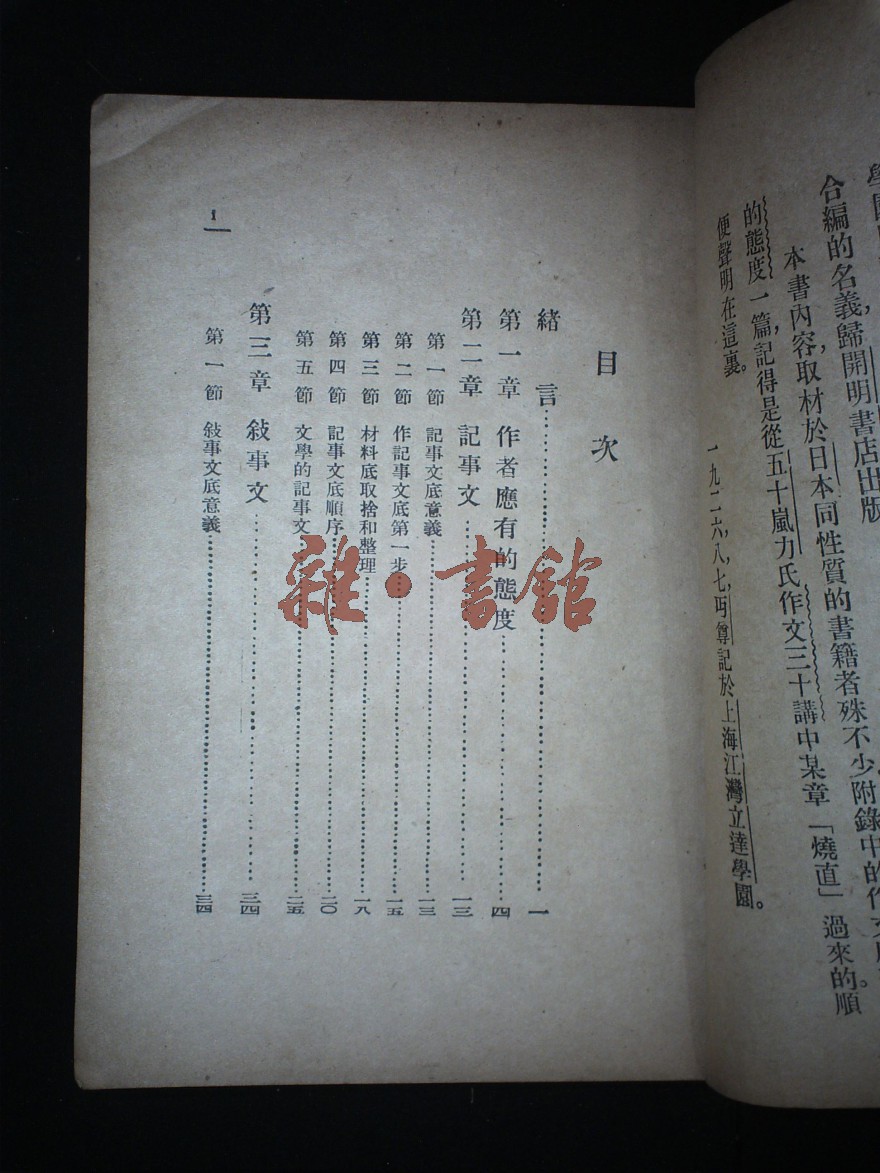 合編的名義歸開明書店出版
本書內容,取材於日本同性質的書籍者殊不少附錄中的作文
的態度一篇,記得是從五十嵐力氏作文三十講中某章「燒直」過來的順
便聲明在這裏。
一九二六,八,七,丏尊記於上海江灣立達學園。
目次
緒言……一
第一章 作者應有的態度……四
第二章 記事文……一三
第一節 記事文底意義……一三
第二節 作記事文底第一步……一五
第三節 材料底取捨和整理……一八
第四節 記事文底順序……二〇
第五節 文學的記事文……二五
第三章 敍事文……三四
第一節 敍事文底意義……三四
1
雜·書館